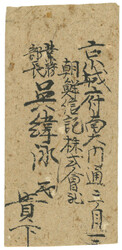 京城府黄金町通二丁目一三
朝鮮信託株式會社
業務
部長
吳緯泳 氏
貴下